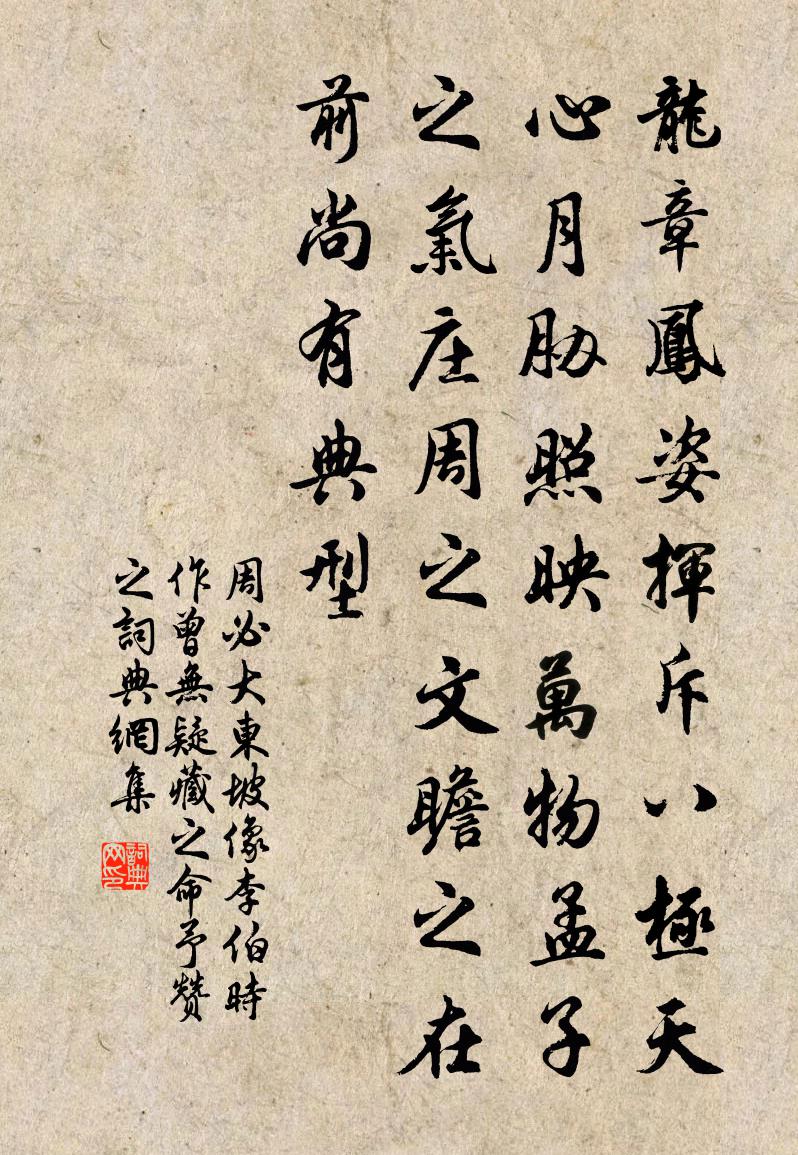 龍章鳳姿揮斥八極天
心月脅照映萬物孟子
之氣庄周之文瞻之在
前尚有典型
周必大東坡像李伯時
作曾無疑藏之命予贊
之詞典網集
詞典
网印